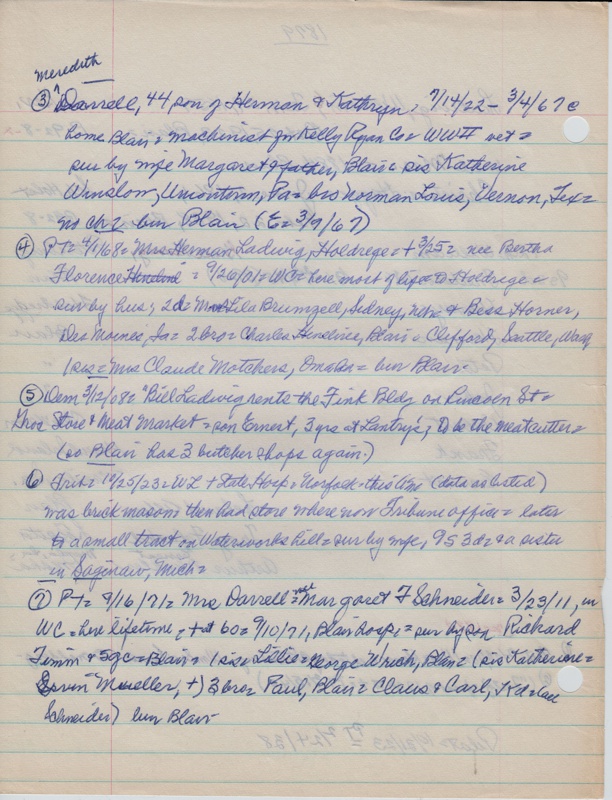 Meredith
③ Darrell, 44, son of Herman & Kathryn, 7/14/22 - 3/4/67 @
home Blair = machinist for Kelly Ryan Co = WWII vet =
sur by wife Margaret & father, Blair & sis Katherine
Winslow, Uniontown, Pa = bro Norman Louis, Vernon, Tex =
no ch = bur Blair (E = 3/9/67)
④ PT = 4/1/68 = Mrs Herman Ladwig, Holdrege = + 3/25 = nee Bertha
Florence = 9/26/01 = WC = here most of life = to Holdrege =
sur by hus; 2d = Lila Brumzell, Sidney, Nebr & Bess Horner,
Des Moines, Ia = 2 bro = Charles Hendrics, Blair & Clifford, Seattle, Wash
1 sis = Mrs Claude Motchers, Omaha = bur Blair
⑤ Dem 3/12/08 = "Bill Ladwig rents the Fink Bldg on Lincoln St =
Groc Store & Meat Market = son Ernest, 3 yrs at Lantry's, to be the meatcutter =
(so Blair has 3 butcher shops again.)
⑥ Trib = 10/25/23 = WL + State Hosp = Norfolk this (data as listed)
was brick mason = then had store where now Tribune office = later
to a small tract on Waterworks hill = sur by wife, 9s 3d & a sister
in Saginaw, Mich =
⑦ PT = 9/16/71 = Mrs Darrell = Margaret F Schneider = 3/23/11, in
WC = here lifetime, + at 60 = 9/10/71, Blair hosp, = sur by son Richard
Timm & 5gc = Blair = 1 sis = Lillie = George Wrich, Blair = (sis Katherine =
Ervin Mueller, +) 3 bro = Paul, Blair = Claus & Carl, Kd = Carl
Schneider) bur Blair